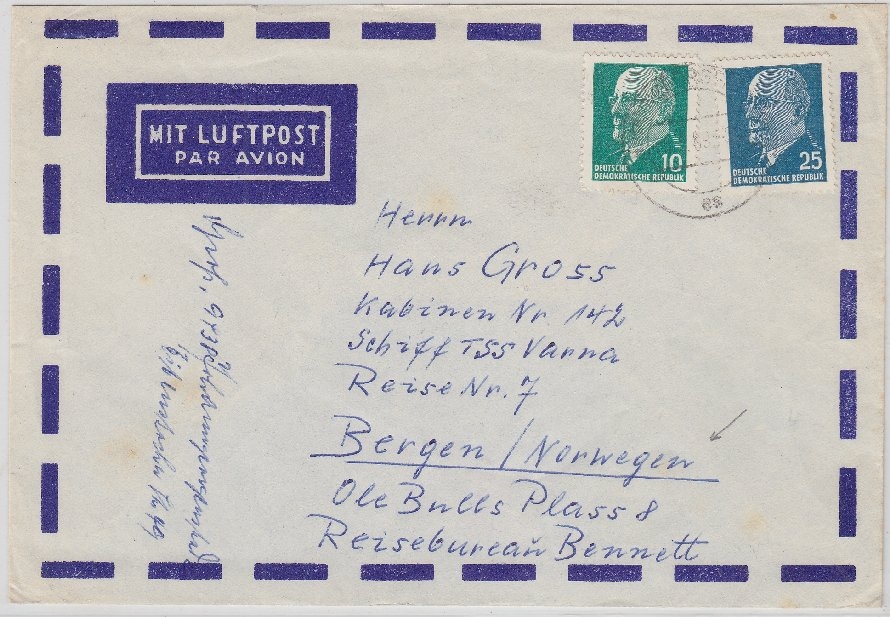 MIT LUFTPOST
PAR AVION
10
DEUTSCHE
DEMOKRATISCHE REPUBLIK
25
DEUTSCHE
DEMOKRATISCHE REPUBLIK
Herrn
Hans Gross
Kabinen Nr. 142
Schiff TSS Varna
Reise Nr. 7
Bergen / Norwegen
Ole Bulls Plass 8
Reisebureau Bennett
Groß, 9430